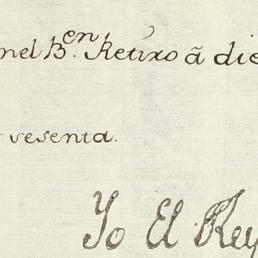 nel Bᵉⁿ. Retiro ã die
vesenta.
Yo El Rey